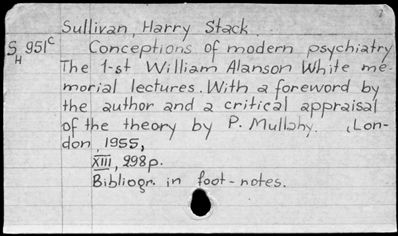 Sullivan, Harry Stack.
S 951c Conceptions of modern psychiatry
H
The 1-st William Alanson White me-
morial lectures. With a foreword by
the author and a critical appraisal
of the theory by P. Mullahy. , Lon-
don, 1955,
XIII, 298p.
Bibliogr. in foot-notes.